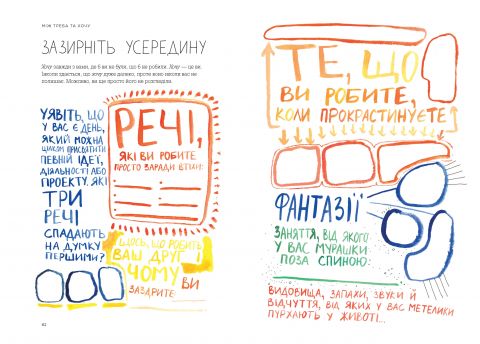 МІЖ ТРЕБА ТА ХОЧУ
ЗАЗИРНІТЬ УСЕРЕДИНУ
Хочу завжди з вами, де б ви не були, що б не робили. Хочу — це ви.
Інколи здається, що хочу дуже далеко, проте воно ніколи вас не
полишає. Можливо, ви ще просто його не розгледіли.
УЯВІТЬ, ЩО
У ВАС Є ДЕНЬ,
ЯКИЙ МОЖНА
ЦІЛКОМ ПРИСВЯТИТИ
ПЕВНІЙ ІДЕЇ,
ДІЯЛЬНОСТІ АБО
ПРОЕКТУ. ЯКІ
ТРИ
РЕЧІ
СПАДАЮТЬ
НА ДУМКУ
ПЕРШИМИ?
РЕЧІ,
ЯКІ ВИ РОБИТЕ
ПРОСТО ЗАРАДИ ВТІХИ:
ЩОСЬ, ЩО РОБИТЬ
ВАШ ДРУГ І
ЧОМУ ВИ
ЗАЗДРИТЕ
62
ТЕ, ЩО
ВИ РОБИТЕ,
КОЛИ ПРОКРАСТИНУЄТЕ
ФАНТАЗІЇ
ЗАНЯТТЯ, ВІД ЯКОГО
У ВАС МУРАШКИ
ПОЗА СПИНОЮ:
ВИДОВИЩА, ЗАПАХИ, ЗВУКИ Й
ВІДЧУТТЯ, ВІД ЯКИХ У ВАС МЕТЕЛИКИ
ПУРХАЮТЬ У ЖИВОТІ...